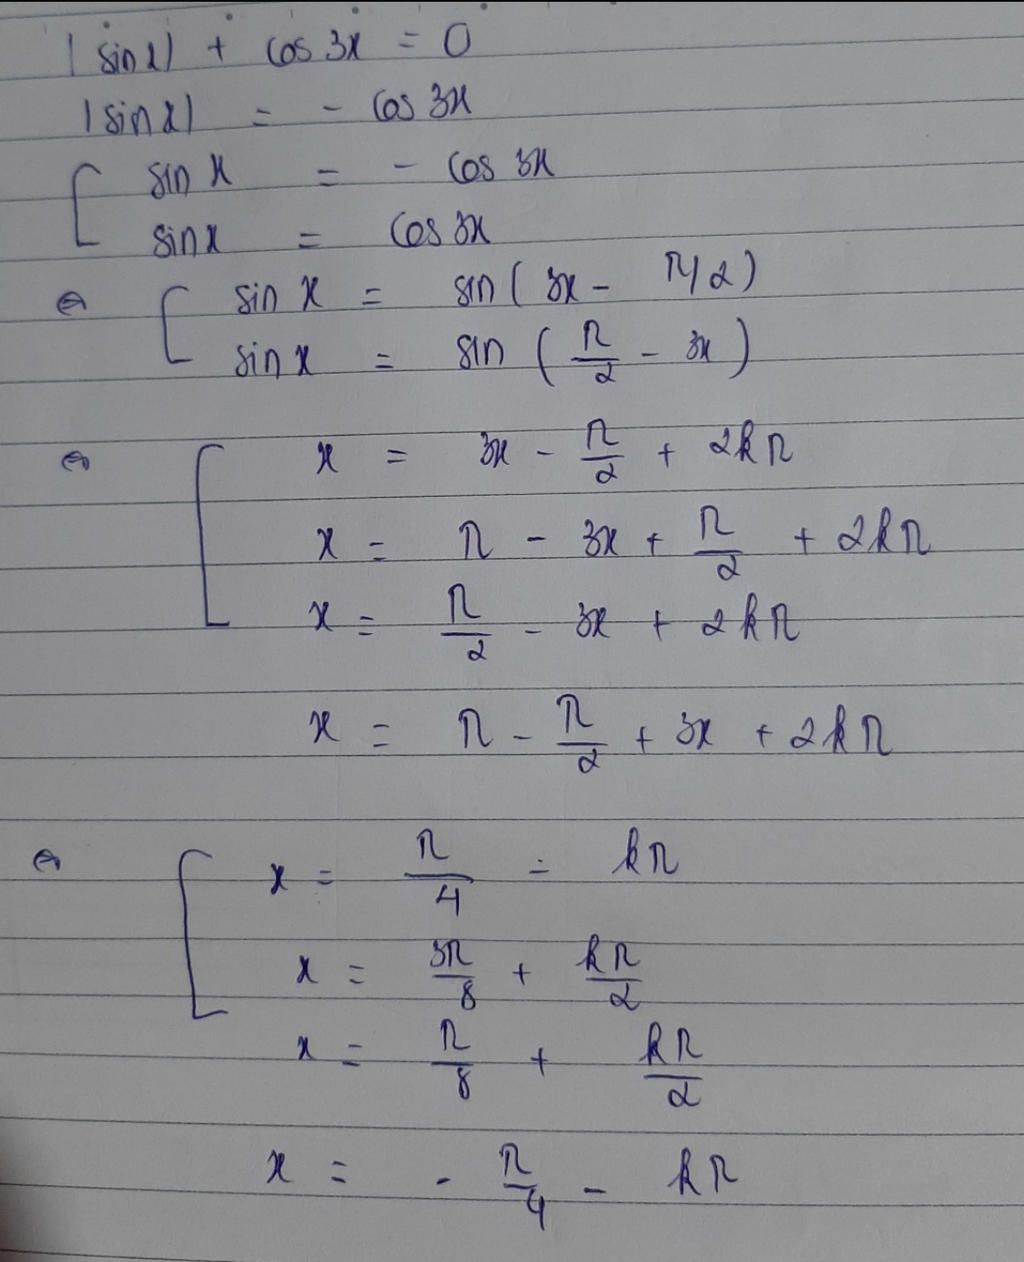 |sinx| + cos 3x = 0
|sinx| = - cos 3x
[ sin x = - cos 3x
sinx = cos 3x
⇔ [ sin x = sin ( 3x - π/2 )
sin x = sin ( π/2 - 3x )
⇔ [ x = 3x - π/2 + 2kπ
x = π - 3x + π/2 + 2kπ
x = π/2 - 3x + 2kπ
x = π - π/2 + 3x + 2kπ
⇔ [ x = π/4 - kπ
x = 3π/8 + kπ/2
x = π/8 + kπ/2
x = - π/4 - kπ